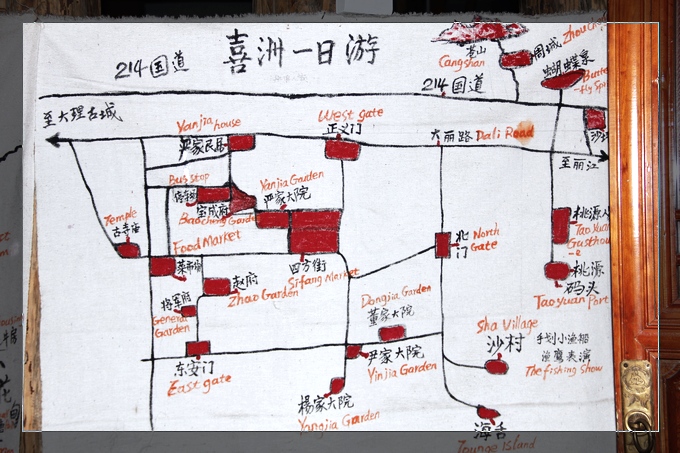 喜洲一日游
214国道
苍山
Cangshan
周城
蝴蝶泉
214国道
至大理古城
Yanjia house
严家民居
West gate
正义门
大丽路 Dali Road
至丽江
Bus stop
宝成府
Baocheng Garden
Yanjia Garden
严家大院
Temple
Food Market
菜市场
四方街
Sifang Market
北门
North Gate
桃源人
桃源码头
Taoyuan Port
赵府
Zhao Garden
将军府
General Garden
Dongjia Garden
董家大院
东安门
East gate
尹家大院
Yinjia Garden
Sha Village
沙村
手划小渔船
渔鹰表演
The fishing Show
楊家大院
Yangjia Garden
海舌
Tounge Island